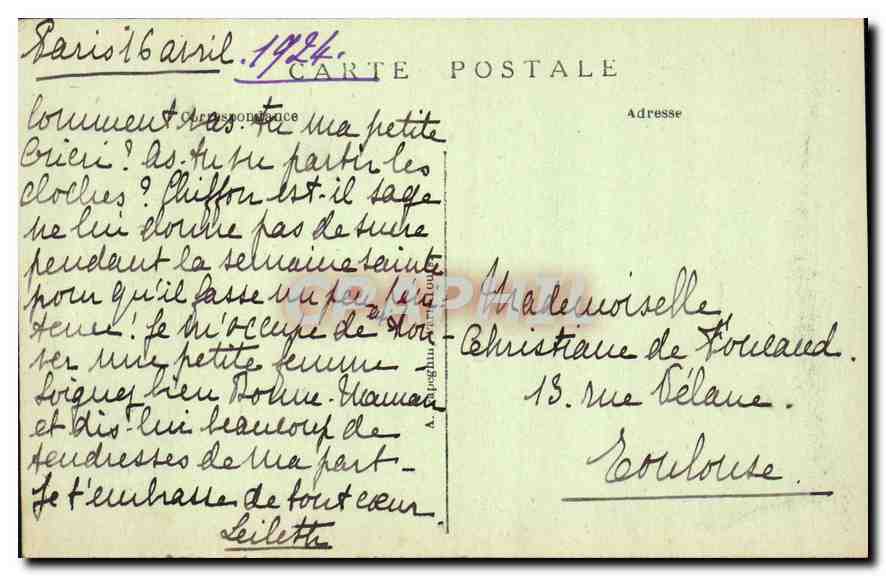 Paris 16 avril 1924.
CARTE POSTALE
Correspondance
Adresse
Comment vas-tu ma petite
Cricri? As-tu vu partir les
cloches? Chiffon est-il sage
ne lui donne pas de sucre
pendant la semaine sainte
pour qu'il fasse un peu péni-
tence! Je m'occupe de trou-
ver une petite femme -
Soignez bien Bonne-Maman
et dis-lui beaucoup de
tendresses de ma part -
Je t'embrasse de tout cœur.
Mademoiselle
Christiane de
13. rue Pélane.
Toulouse.
CPAPHIL